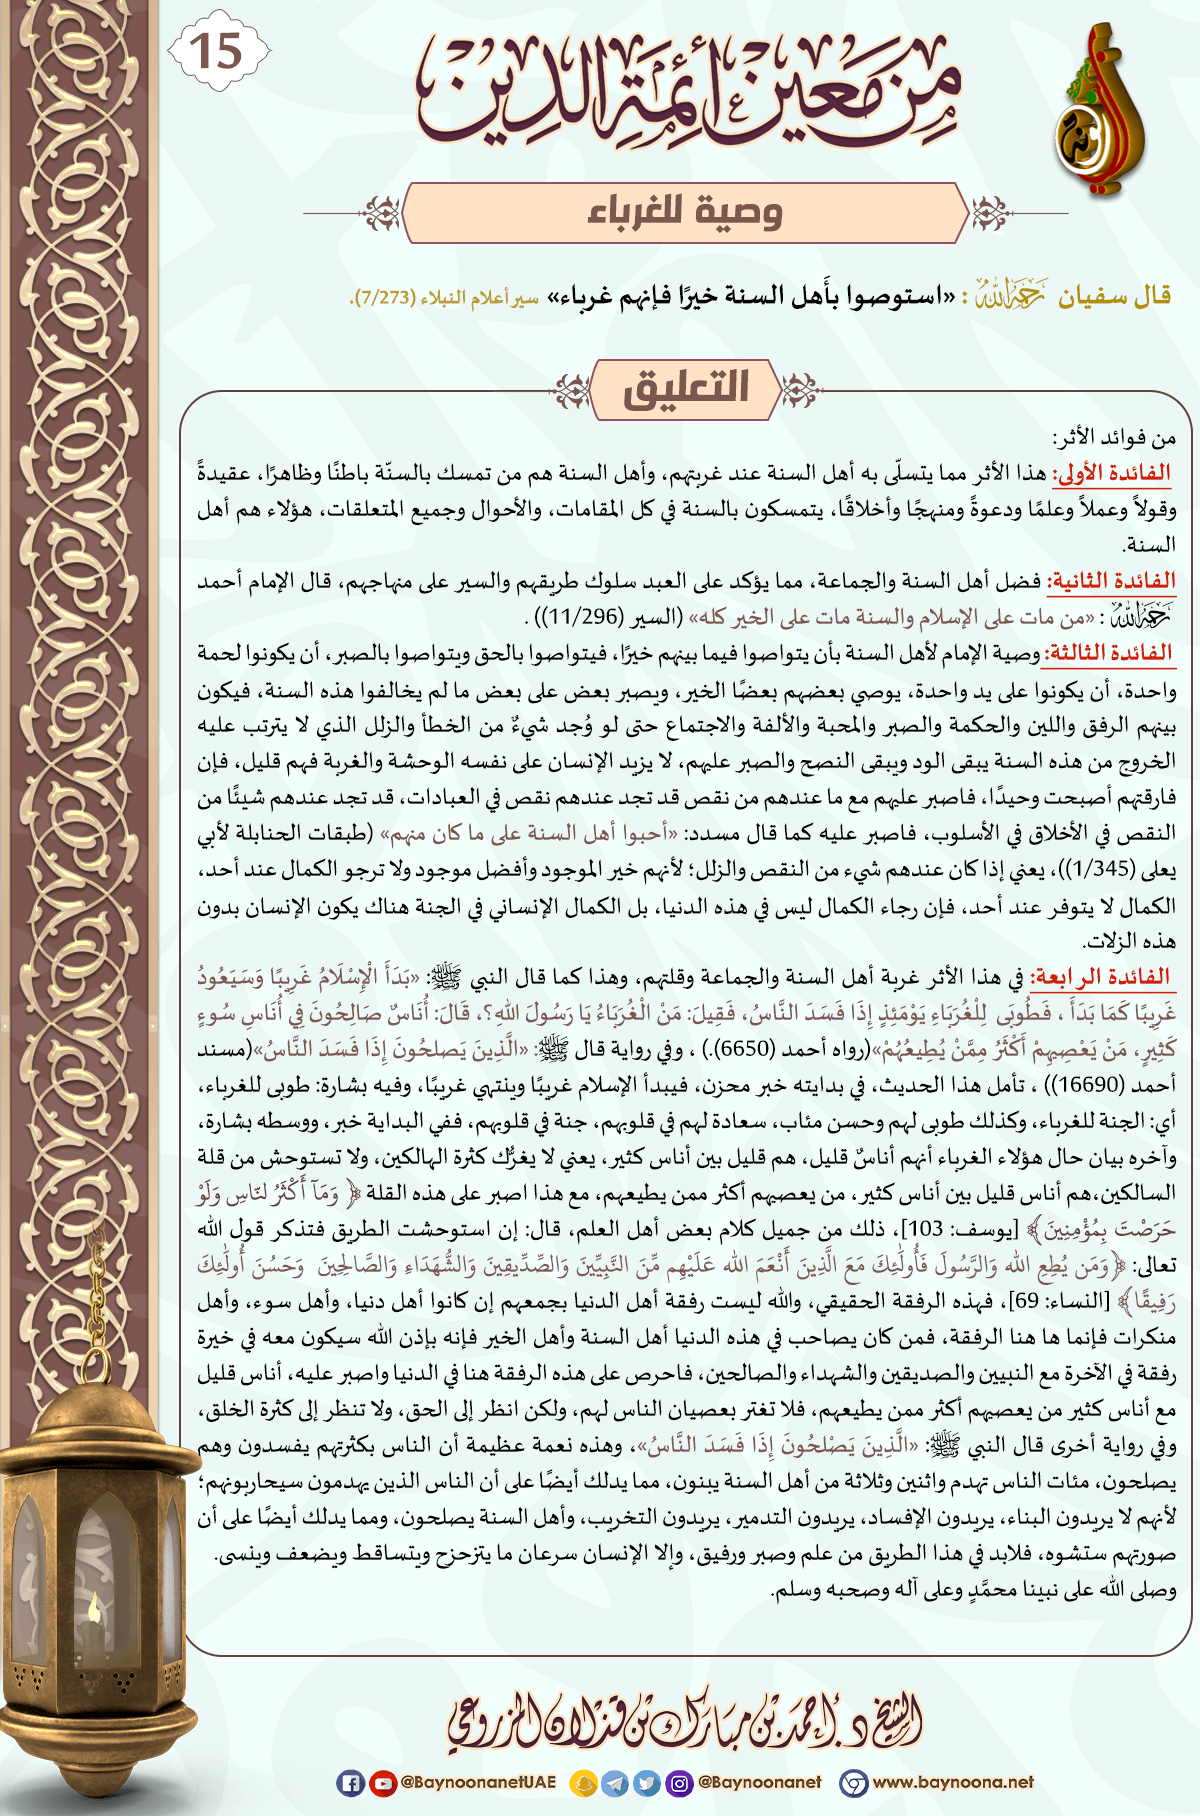 15
من معين أئمة الدين
وصية للغرباء
قال سفيان رحمه الله : «استوصوا بأهل السنة خيرًا فإنهم غرباء» سير أعلام النبلاء (7/273).
التعليق
من فوائد الأثر:
الفائدة الأولى: هذا الأثر مما يتسلّى به أهل السنة عند غربتهم، وأهل السنة هم من تمسك بالسنّة باطنًا وظاهرًا، عقيدةً
وقولاً وعملاً وعلمًا ودعوةً ومنهجًا وأخلاقًا، يتمسكون بالسنة في كل المقامات، والأحوال وجميع المتعلقات، هؤلاء هم أهل
السنة.
الفائدة الثانية: فضل أهل السنة والجماعة، مما يؤكد على العبد سلوك طريقهم والسير على منهاجهم، قال الإمام أحمد
رحمه الله : «من مات على الإسلام والسنة مات على الخير كله» (السير (11/296)) .
الفائدة الثالثة: وصية الإمام لأهل السنة بأن يتواصوا فيما بينهم خيرًا، فيتواصوا بالحق ويتواصوا بالصبر، أن يكونوا لحمة
واحدة، أن يكونوا على يد واحدة، يوصي بعضهم بعضًا الخير، ويصبر بعض على بعض ما لم يخالفوا هذه السنة، فيكون
بينهم الرفق واللين والحكمة والصبر والمحبة والألفة والاجتماع حتى لو وُجد شيءٌ من الخطأ والزلل الذي لا يترتب عليه
الخروج من هذه السنة يبقى الود ويبقى النصح والصبر عليهم، لا يزيد الإنسان على نفسه الوحشة والغربة فهم قليل، فإن
فارقتهم أصبحت وحيدًا، فاصبر عليهم مع ما عندهم من نقص قد تجد عندهم نقص في العبادات، قد تجد عندهم شيئًا من
النقص في الأخلاق في الأسلوب، فاصبر عليه كما قال مسدد: «أحبوا أهل السنة على ما كان منهم» (طبقات الحنابلة لأبي
يعلى (1/345))، يعني إذا كان عندهم شيء من النقص والزلل؛ لأنهم خير الموجود وأفضل موجود ولا ترجو الكمال عند أحد،
الكمال لا يتوفر عند أحد، فإن رجاء الكمال ليس في هذه الدنيا، بل الكمال الإنساني في الجنة هناك يكون الإنسان بدون
هذه الزلات.
الفائدة الرابعة: في هذا الأثر غربة أهل السنة والجماعة وقلتهم، وهذا كما قال النبي ﷺ: «بَدَأَ الْإِسْلَامُ غَرِيبًا وَسَيَعُودُ
غَرِيبًا كَمَا بَدَأَ ، فَطُوبَى لِلْغُرَبَاءِ يَوْمَئِذٍ إِذَا فَسَدَ النَّاسُ، فَقِيلَ: مَنْ الْغُرَبَاءُ يَا رَسُولَ اللهِ؟، قَالَ: أُنَاسٌ صَالِحُونَ فِي أُنَاسِ سُوءٍ
كَثِيرٍ، مَنْ يَعْصِيهِمْ أَكْثَرُ مِمَّنْ يُطِيعُهُمْ»(رواه أحمد (6650).) ، وفي رواية قال ﷺ: «الَّذِينَ يَصلحُونَ إِذَا فَسَدَ النَّاسُ»(مسند
أحمد (16690)) ، تأمل هذا الحديث، في بدايته خبر محزن، فيبدأ الإسلام غريبًا وينتهي غريبًا، وفيه بشارة: طوبى للغرباء،
أي: الجنة للغرباء، وكذلك طوبى لهم وحسن مئاب، سعادة لهم في قلوبهم، جنة في قلوبهم، ففي البداية خبر، ووسطه بشارة،
وآخره بيان حال هؤلاء الغرباء أنهم أناسٌ قليل، هم قليل بين أناس كثير، يعني لا يغرُّك كثرة الهالكين، ولا تستوحش من قلة
السالكين،هم أناس قليل بين أناس كثير، من يعصيهم أكثر ممن يطيعهم، مع هذا اصبر على هذه القلة ﴿ وَمَآ أَكْثَرُ لنّاسِ وَلَوْ
حَرَصْتَ بِمُؤْمِنِينَ﴾ [يوسف: 103]، ذلك من جميل كلام بعض أهل العلم، قال: إن استوحشت الطريق فتذكر قول الله
تعالى: ﴿وَمَن يُطِعِ الله وَالرَّسُولَ فَأُولَٰئِكَ مَعَ الَّذِينَ أَنْعَمَ الله عَلَيْهِم مِّنَ النَّبِيِّينَ وَالصِّدِّيقِينَ وَالشُّهَدَاءِ وَالصَّالِحِينَ وَحَسُنَ أُولَٰئِكَ
رَفِيقًا﴾ [النساء: 69]، فهذه الرفقة الحقيقي، والله ليست رفقة أهل الدنيا بجمعهم إن كانوا أهل دنيا، وأهل سوء، وأهل
منكرات فإنما ها هنا الرفقة، فمن كان يصاحب في هذه الدنيا أهل السنة وأهل الخير فإنه بإذن الله سيكون معه في خيرة
رفقة في الآخرة مع النبيين والصديقين والشهداء والصالحين، فاحرص على هذه الرفقة هنا في الدنيا واصبر عليه، أناس قليل
مع أناس كثير من يعصيهم أكثر ممن يطيعهم، فلا تغتر بعصيان الناس لهم، ولكن انظر إلى الحق، ولا تنظر إلى كثرة الخلق،
وفي رواية أخرى قال النبي ﷺ: «الَّذِينَ يَصْلحُونَ إِذَا فَسَدَ النَّاسُ»، وهذه نعمة عظيمة أن الناس بكثرتهم يفسدون وهم
يصلحون، مئات الناس تهدم واثنين وثلاثة من أهل السنة يبنون، مما يدلك أيضًا على أن الناس الذين يهدمون سيحاربونهم؛
لأنهم لا يريدون البناء، يريدون الإفساد، يريدون التدمير، يريدون التخريب، وأهل السنة يصلحون، ومما يدلك أيضًا على أن
صورتهم ستشوه، فلابد في هذا الطريق من علم وصبر ورفيق، وإلا الإنسان سرعان ما يتزحزح ويتساقط ويضعف وينسى.
وصلى الله على نبينا محمَّدٍ وعلى آله وصحبه وسلم.
الشيخ د. أحمد بن مبارك بن قذلان المزروعي
@BaynoonanetUAE @Baynoonanet www.baynoona.net